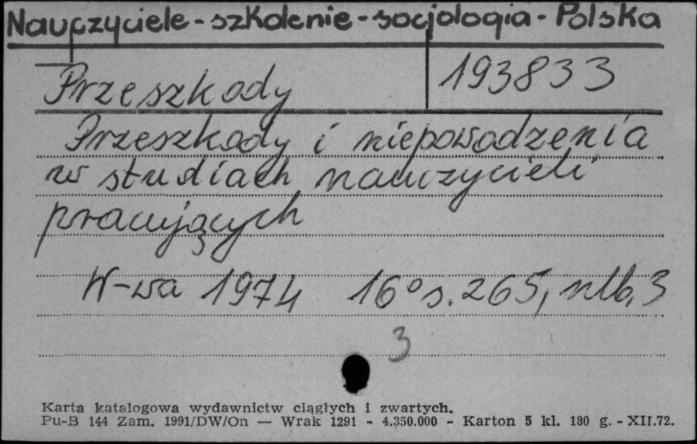 Nauczyciele - szkolenie - socjologia - Polska
Przeszkody 193833
Przeszkody i niepowodzenia
w studiach nauczycieli
pracujących
W-wa 1974 16° s. 265, nlb. 3
3
Karta katalogowa wydawnictw ciągłych i zwartych.
Pu-B 144 Zam. 1991/DW/On — Wrak 1291 - 4.350.000 - Karton 5 kl. 180 g. - XII.72.